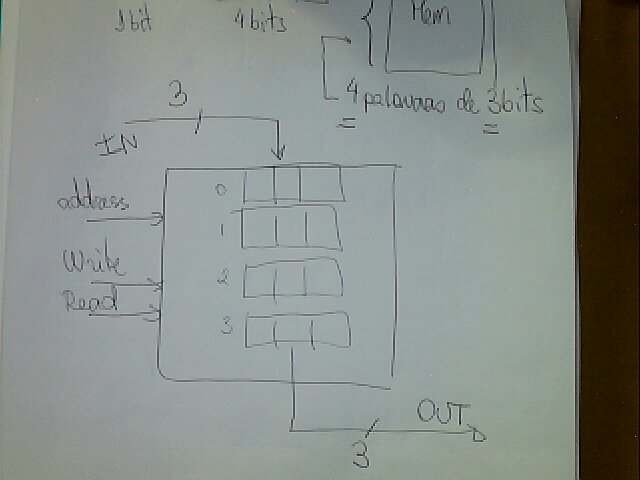 1bit 4bits Mem
4 palavras de 3bits
3
IN
address
Write
Read
0
1
2
3
OUT
3